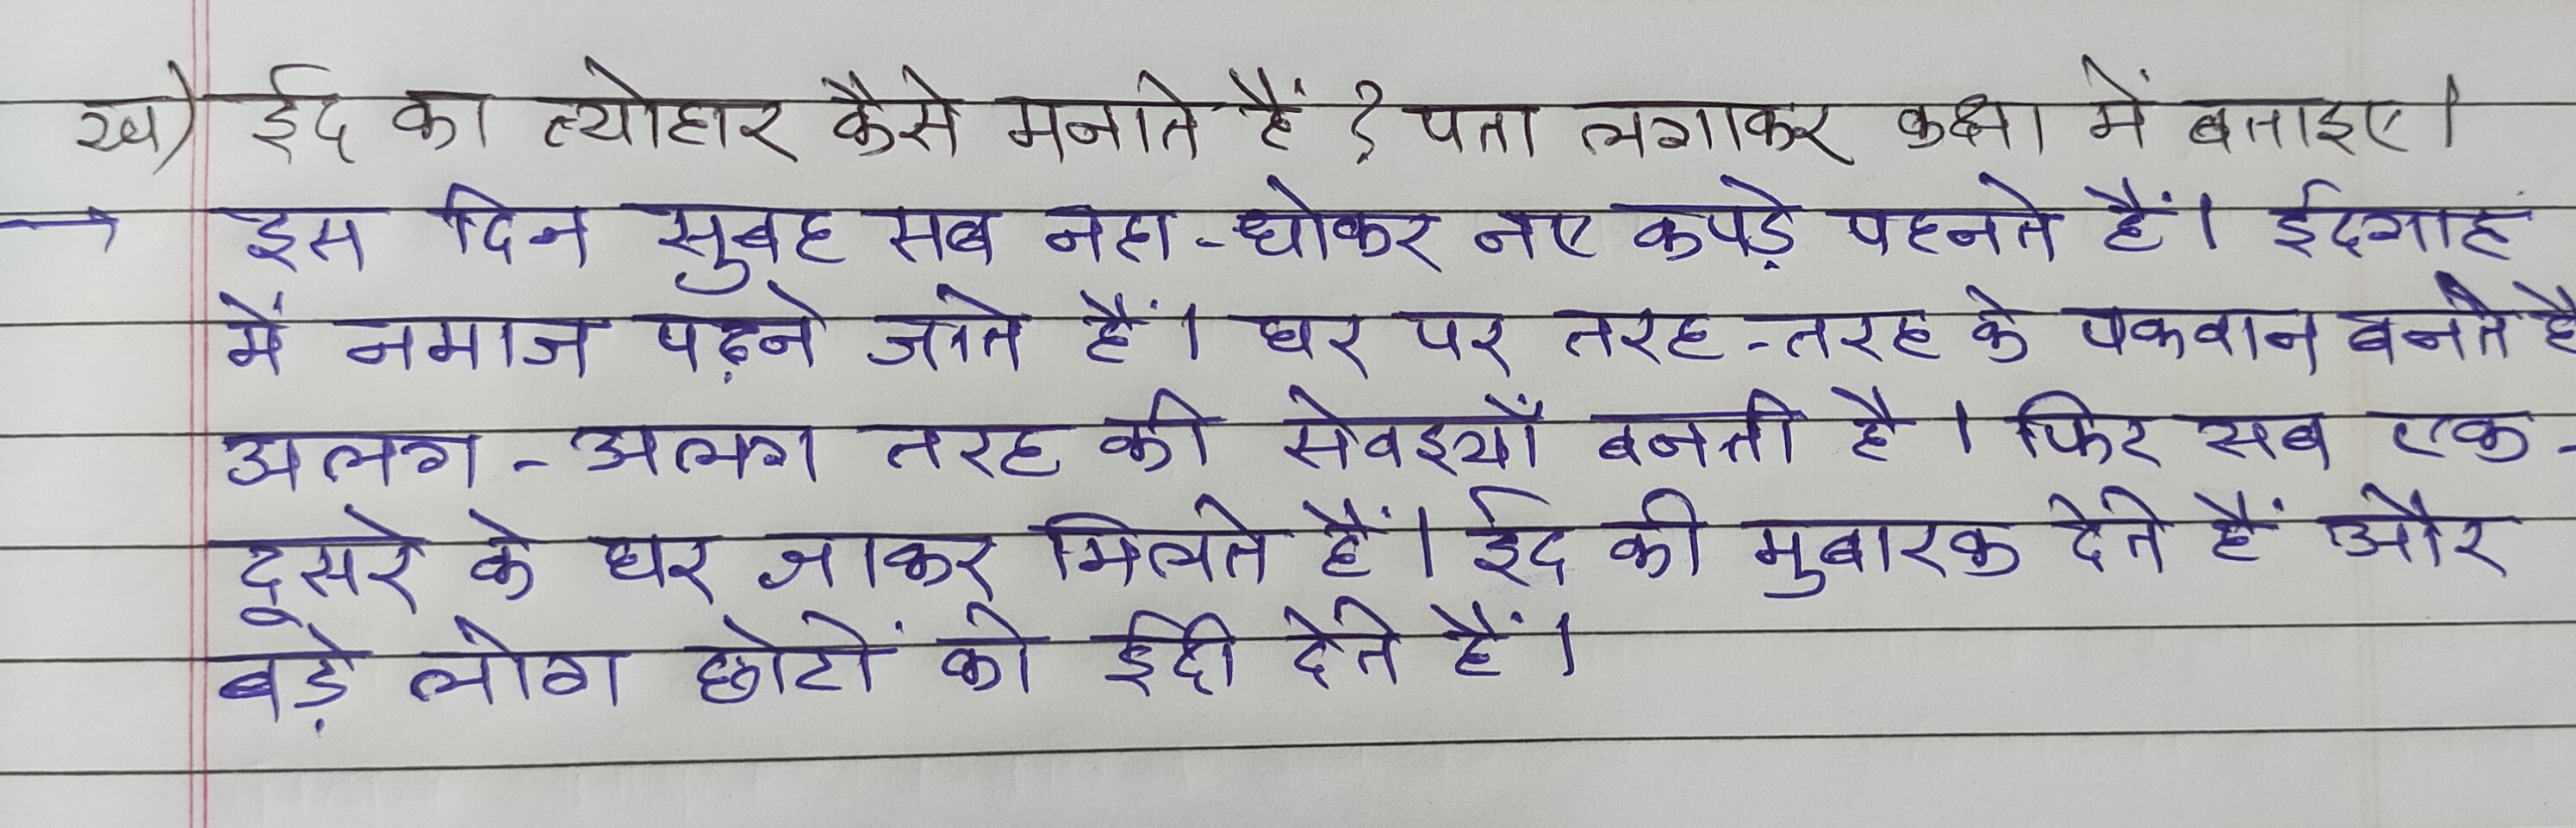 ख) ईद का त्योहार कैसे मनाते हैं ? पता लगाकर कक्षा में बताइए।
→ इस दिन सुबह सब नहा-धोकर नए कपड़े पहनते हैं। ईदगाह
में नमाज पढ़ने जाते हैं। घर पर तरह-तरह के पकवान बनते है
अलग-अलग तरह की सेवइयाँ बनती है। फिर सब एक-
दूसरे के घर जाकर मिलते हैं। ईद की मुबारक देते हैं और
बड़े लोग छोटों को ईदी देते हैं।